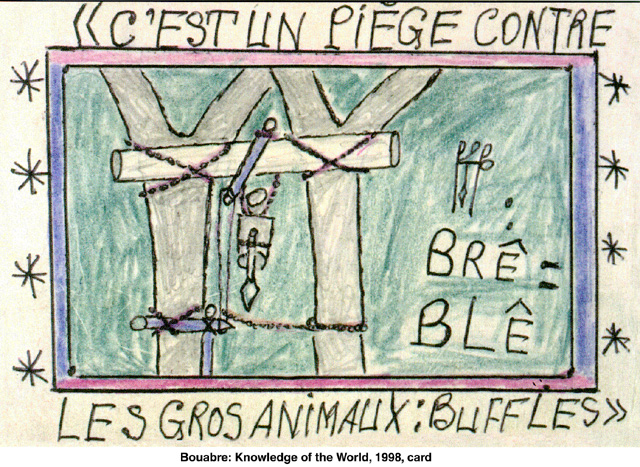 « C'EST UN PIÈGE CONTRE
:
BRÊ =
BLÊ
LES GROS ANIMAUX : BUFFLES »
Bouabre: Knowledge of the World, 1998, card